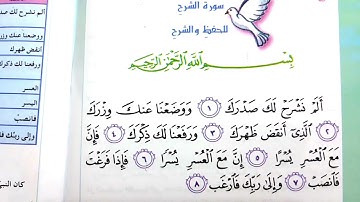 سورة الشرح
للحفظ والشرح
بِسْمِ اللَّهِ الرَّحْمَٰنِ الرَّحِيمِ
أَلَمْ نَشْرَحْ لَكَ صَدْرَكَ ١ وَوَضَعْنَا عَنكَ وِزْرَكَ
٢ الَّذِي أَنقَضَ ظَهْرَكَ ٣ وَرَفَعْنَا لَكَ ذِكْرَكَ ٤ فَإِنَّ
مَعَ الْعُسْرِ يُسْرًا ٥ إِنَّ مَعَ الْعُسْرِ يُسْرًا ٦ فَإِذَا فَرَغْتَ
فَانصَبْ ٧ وَإِلَىٰ رَبِّكَ فَارْغَب ٨
ألم نشرح لك صدرك
ووضعنا عنك وزرك
أنقض ظهرك
ورفعنا لك ذكرك
العسر
اليسر
فانصب
وإلى ربك فا
كان النبي